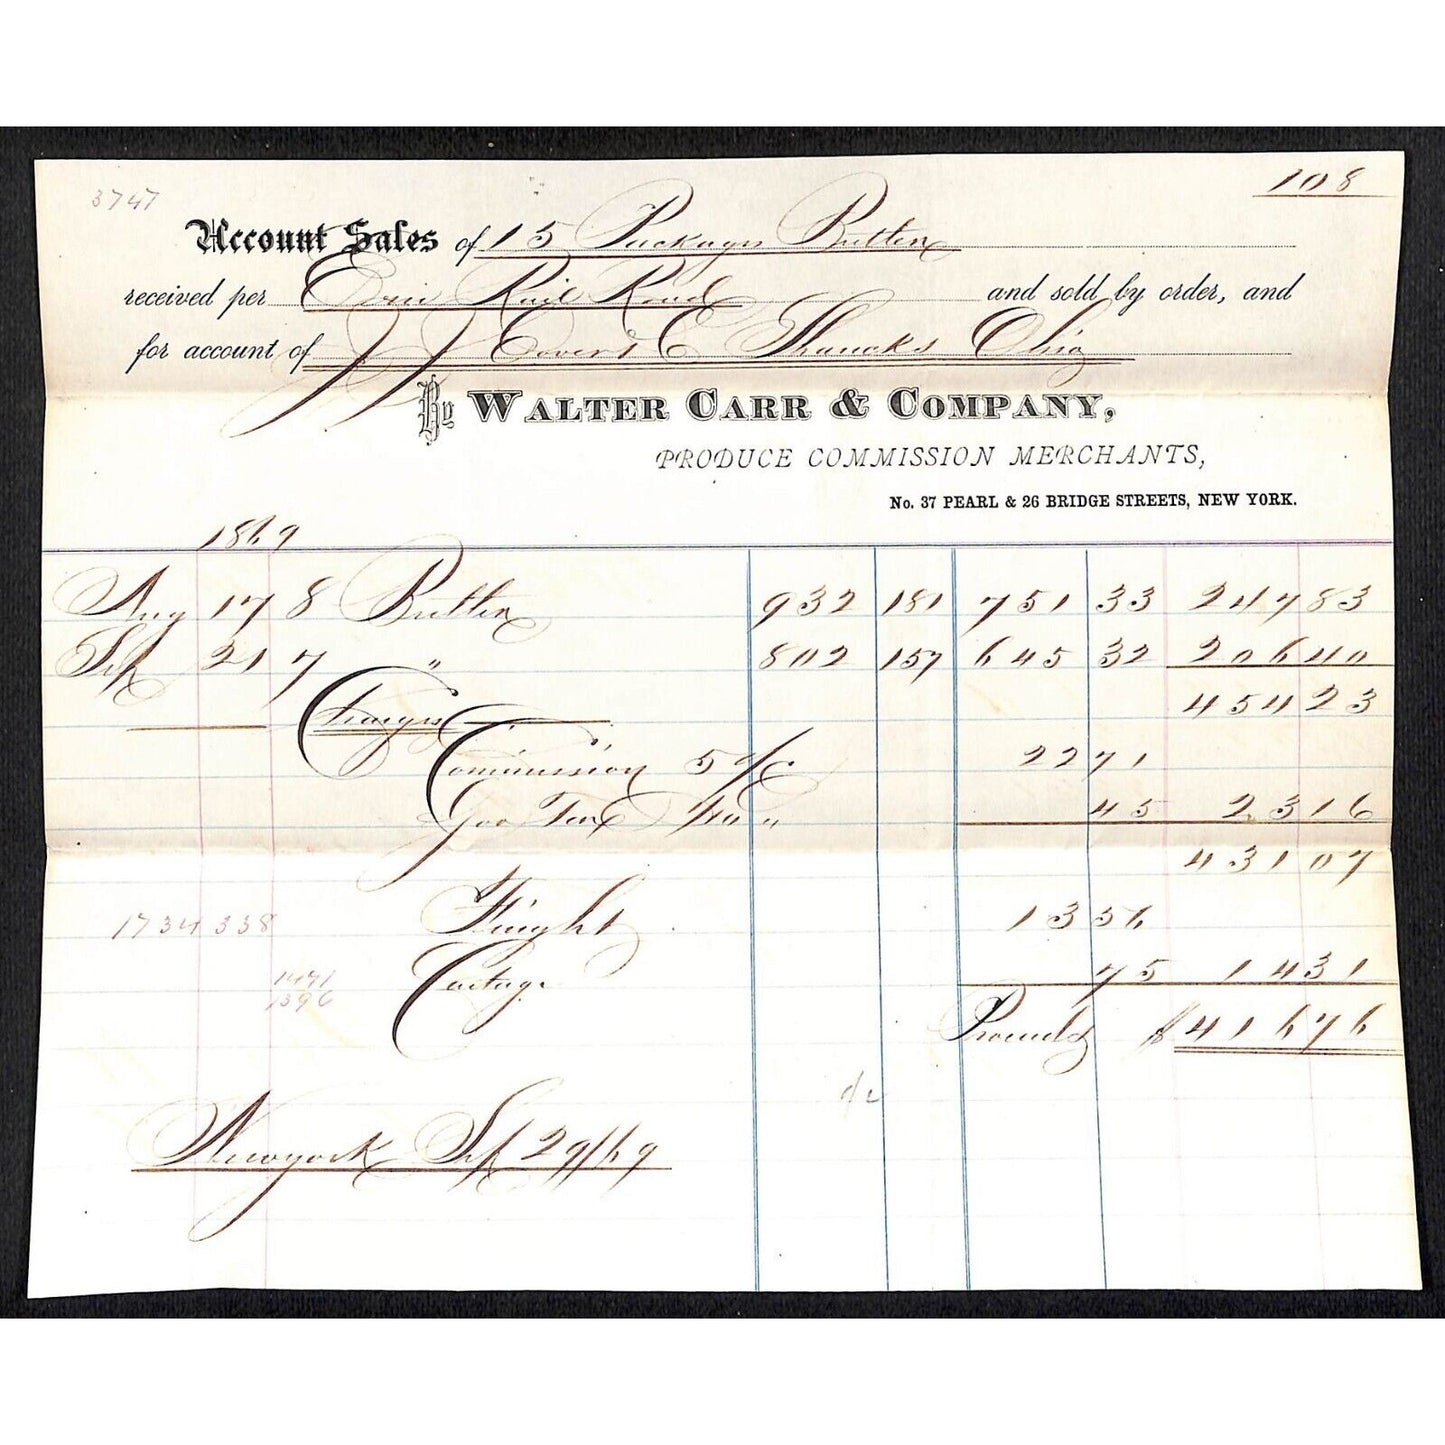 108
3747
Account Sales of 15 Packages Butter
received per Erie Rail Road and sold by order, and
for account of J J Covert E Shancks Ohio
By WALTER CARR & COMPANY,
PRODUCE COMMISSION MERCHANTS,
No. 37 PEARL & 26 BRIDGE STREETS, NEW YORK.
1869
Aug 17 8 Butter 932 181 751 33 247 83
Sep 21 7 " 802 157 645 32 206 40
454 23
Charges
Commission 5 % 22 71
Gov Tax 1/10 " 45 23 16
431 07
1734 338 Freight 13 56
1471
Cartage 75 14 31
1396
Proceeds $ 416 76
New york Sep 29/69